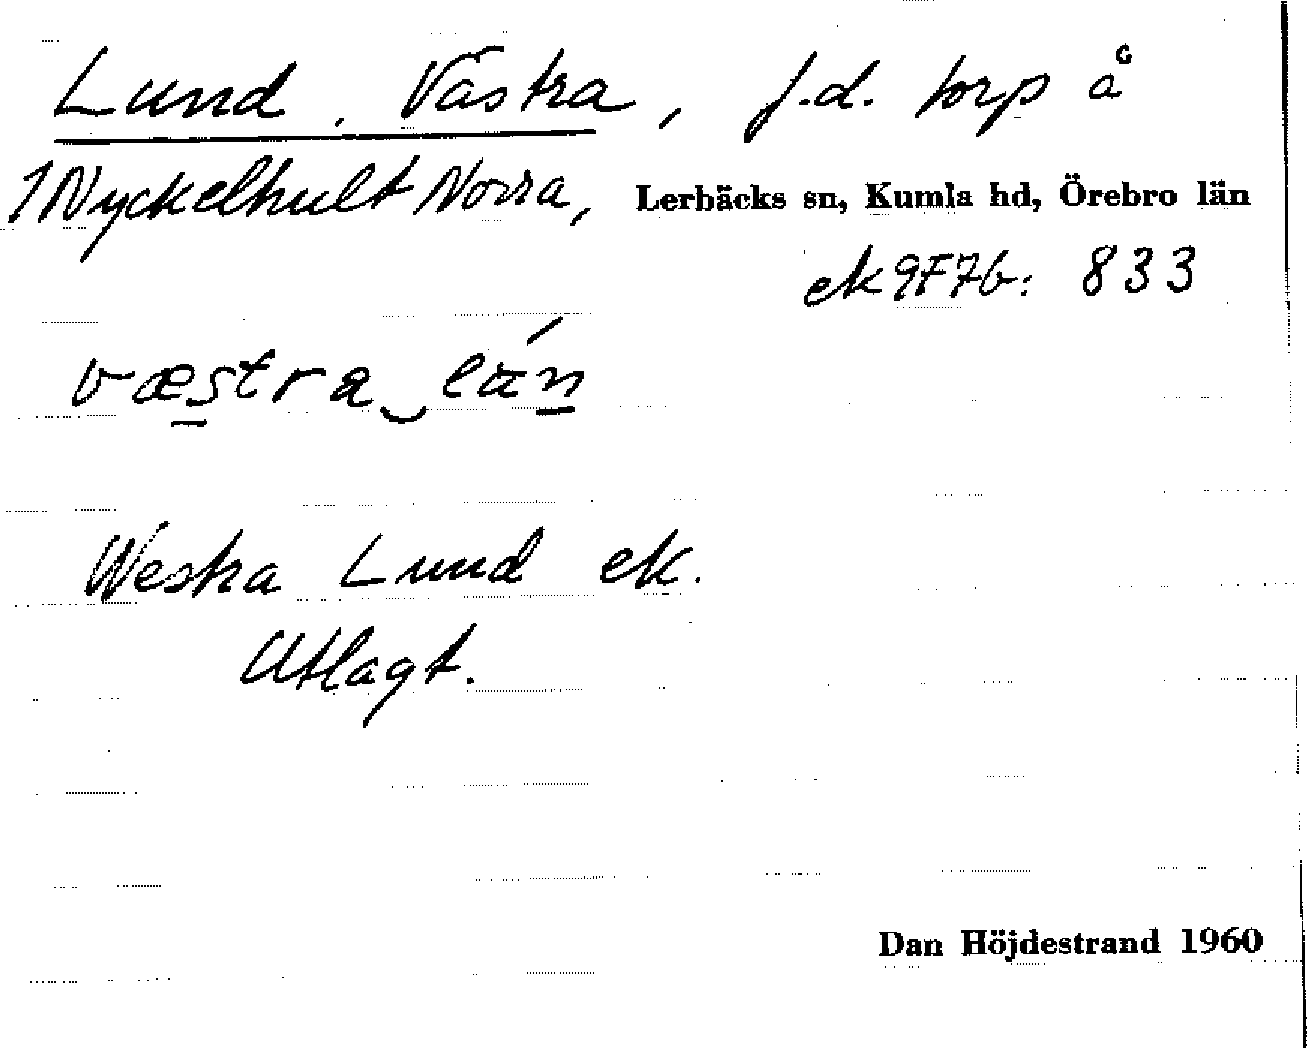 Lund, Västra, f.d. torp å
1 Nyckelhult Norra, Lerbäcks sn, Kumla hd, Örebro län
ek 9F7b: 833
væstra‿lán
Westra Lund ek.
Utlagt.
Dan Höjdestrand 1960